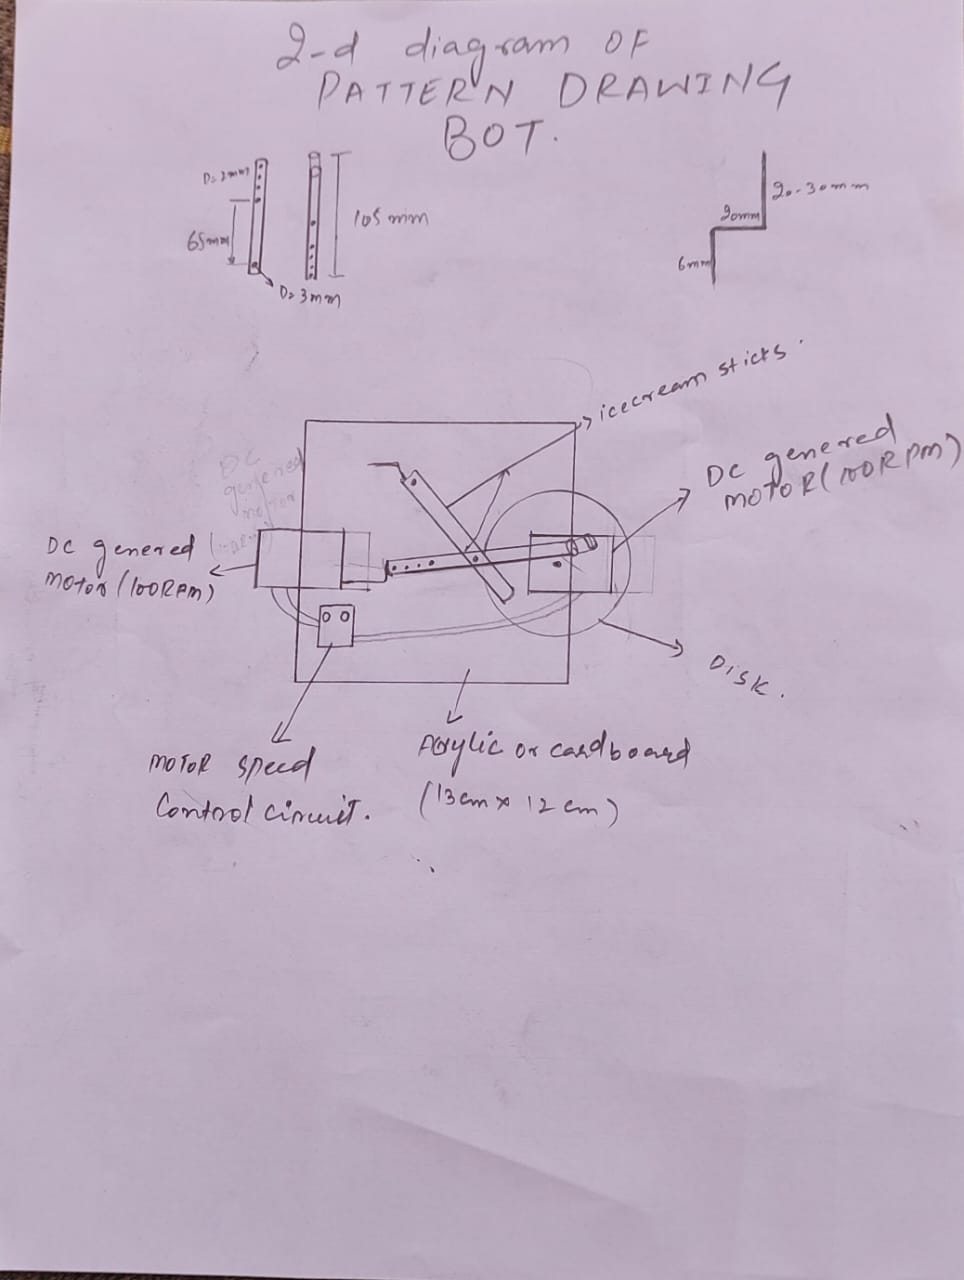 2-d diagram OF
PATTERN DRAWING
BOT.
D=2mm
65mm
D=3mm
105 mm
20-30mm
20mm
6mm
icecream sticks.
DC genered
motoR (100RPM)
DC
genered
motor
DC genered
motor (100RPM)
DISK.
MOTOR speed
Control circuit.
Acrylic or cardboard
(13cm x 12cm)